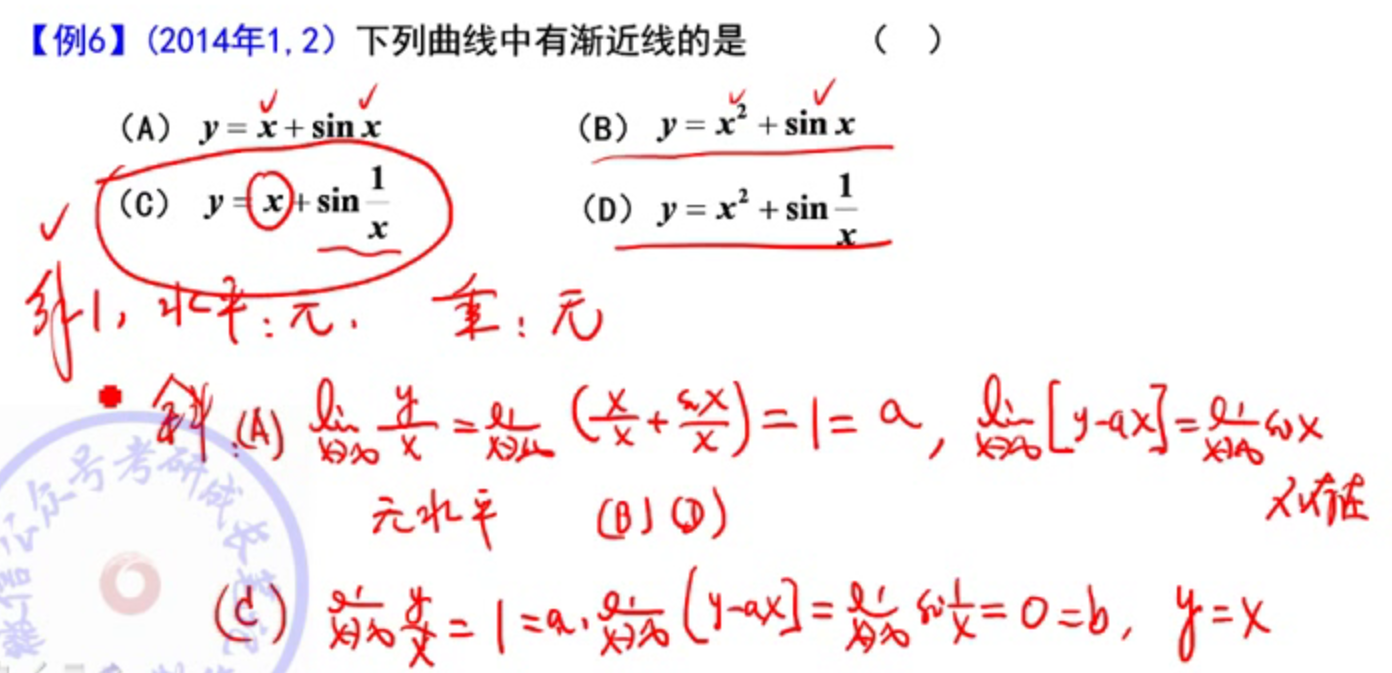 【例6】(2014年1,2) 下列曲线中有渐近线的是 ( )
(A) y = x + sin x (B) y = x² + sin x
(C) y = x + sin 1/x (D) y = x² + sin 1/x
解1, 水平: 无. 垂: 无
斜: (A) lim x→∞ y/x = lim x→∞ (x/x + sin x/x) = 1 = a, lim x→∞ [y-ax] = lim x→∞ sin x
不存在
无水平 (B) (D)
(C) lim x→∞ y/x = 1 = a, lim x→∞ [y-ax] = lim x→∞ sin 1/x = 0 = b, y = x
公众号考研